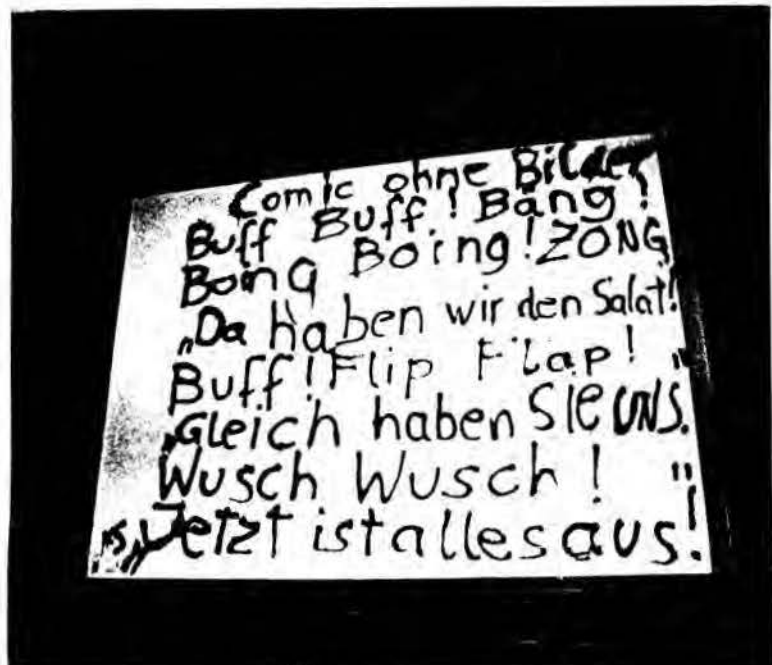 Comic ohne Bilder
Buff Buff! Bang!
Boing Boing! ZONG
„Da haben wir den Salat!
Buff! Flip Flap! "
„Gleich haben SIE UNS.
Wusch Wusch! "
„Jetzt ist alles aus!